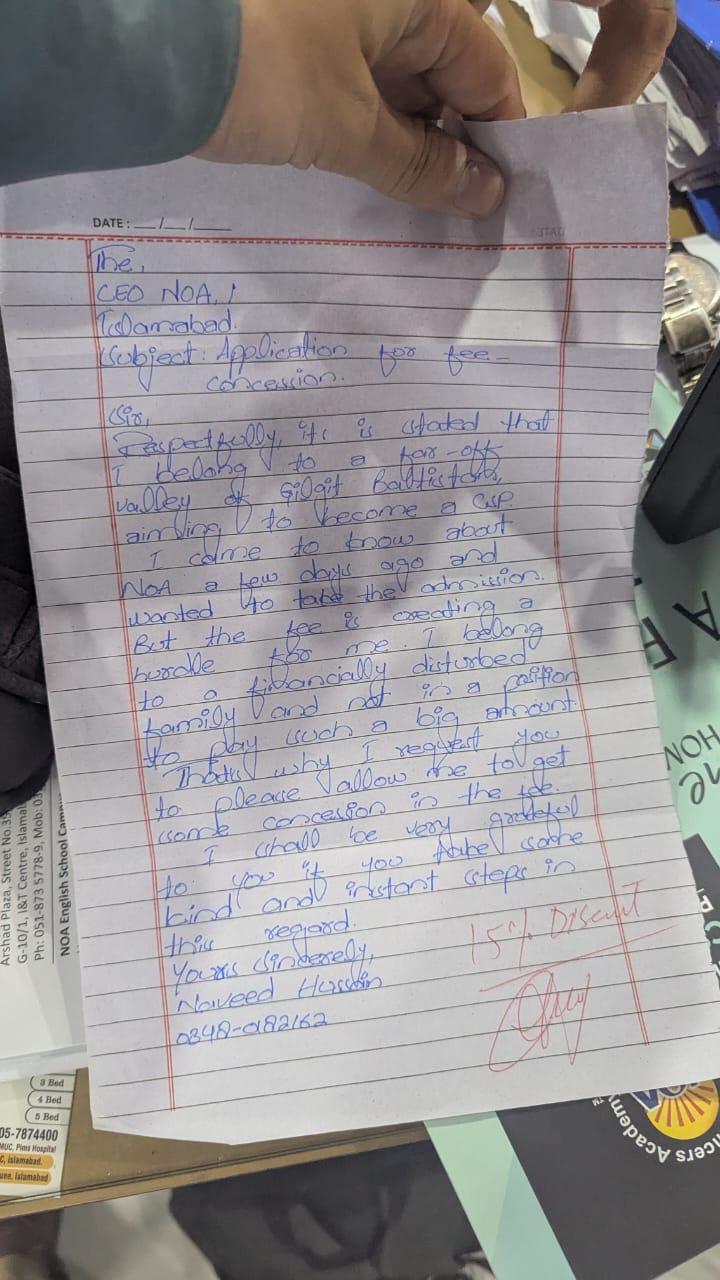 DATE: __/__/__
The,
CEO NOA,
Islamabad.
Subject: Application for fee
concession.
Sir,
Respectfully, it is stated that
I belong to a far-off
valley of Gilgit Baltistan,
aiming to become a CSP.
I came to know about
NOA a few days ago and
wanted to take the admission.
But the fee is creating a
hurdle for me. I belong
to a financially disturbed
family and not in a position
to pay such a big amount.
Thats why I request you
to please allow me to get
some concession in the fee.
I shall be very grateful
to you if you take some
kind and instant steps in
this regard.
Yours Sincerely,
Naveed Hussain
0348-0182162
15% Discount
Arshad Plaza, Street No.35
G-10/1, I&T Centre, Islama
Ph: 051-873 5778-9, Mob: 03
NOA English School Camp
3 Bed
4 Bed
5 Bed
05-7874400
MUC, Pims Hospital
C, Islamabad.
Islamabad
HOW
cers Academy